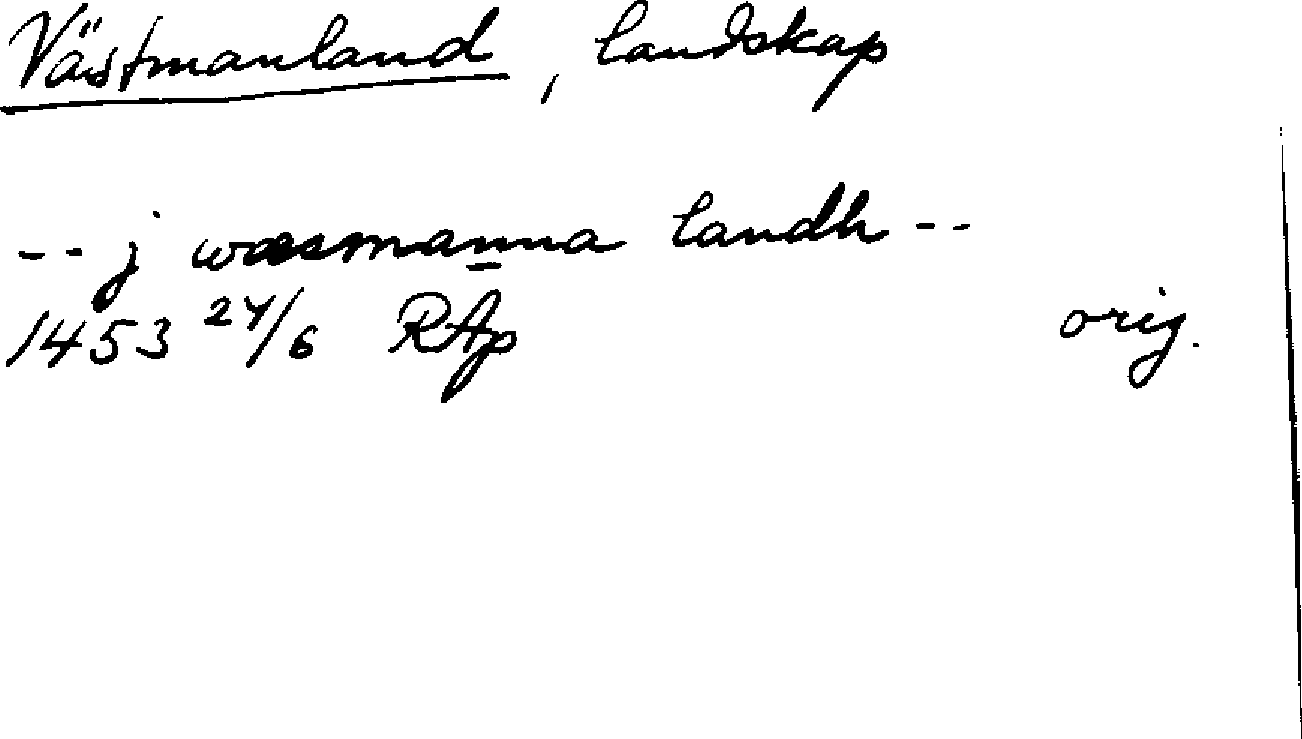 Västmanland, landskap
-- j wæsmanna landh --
1453 24/6 RAp orig.